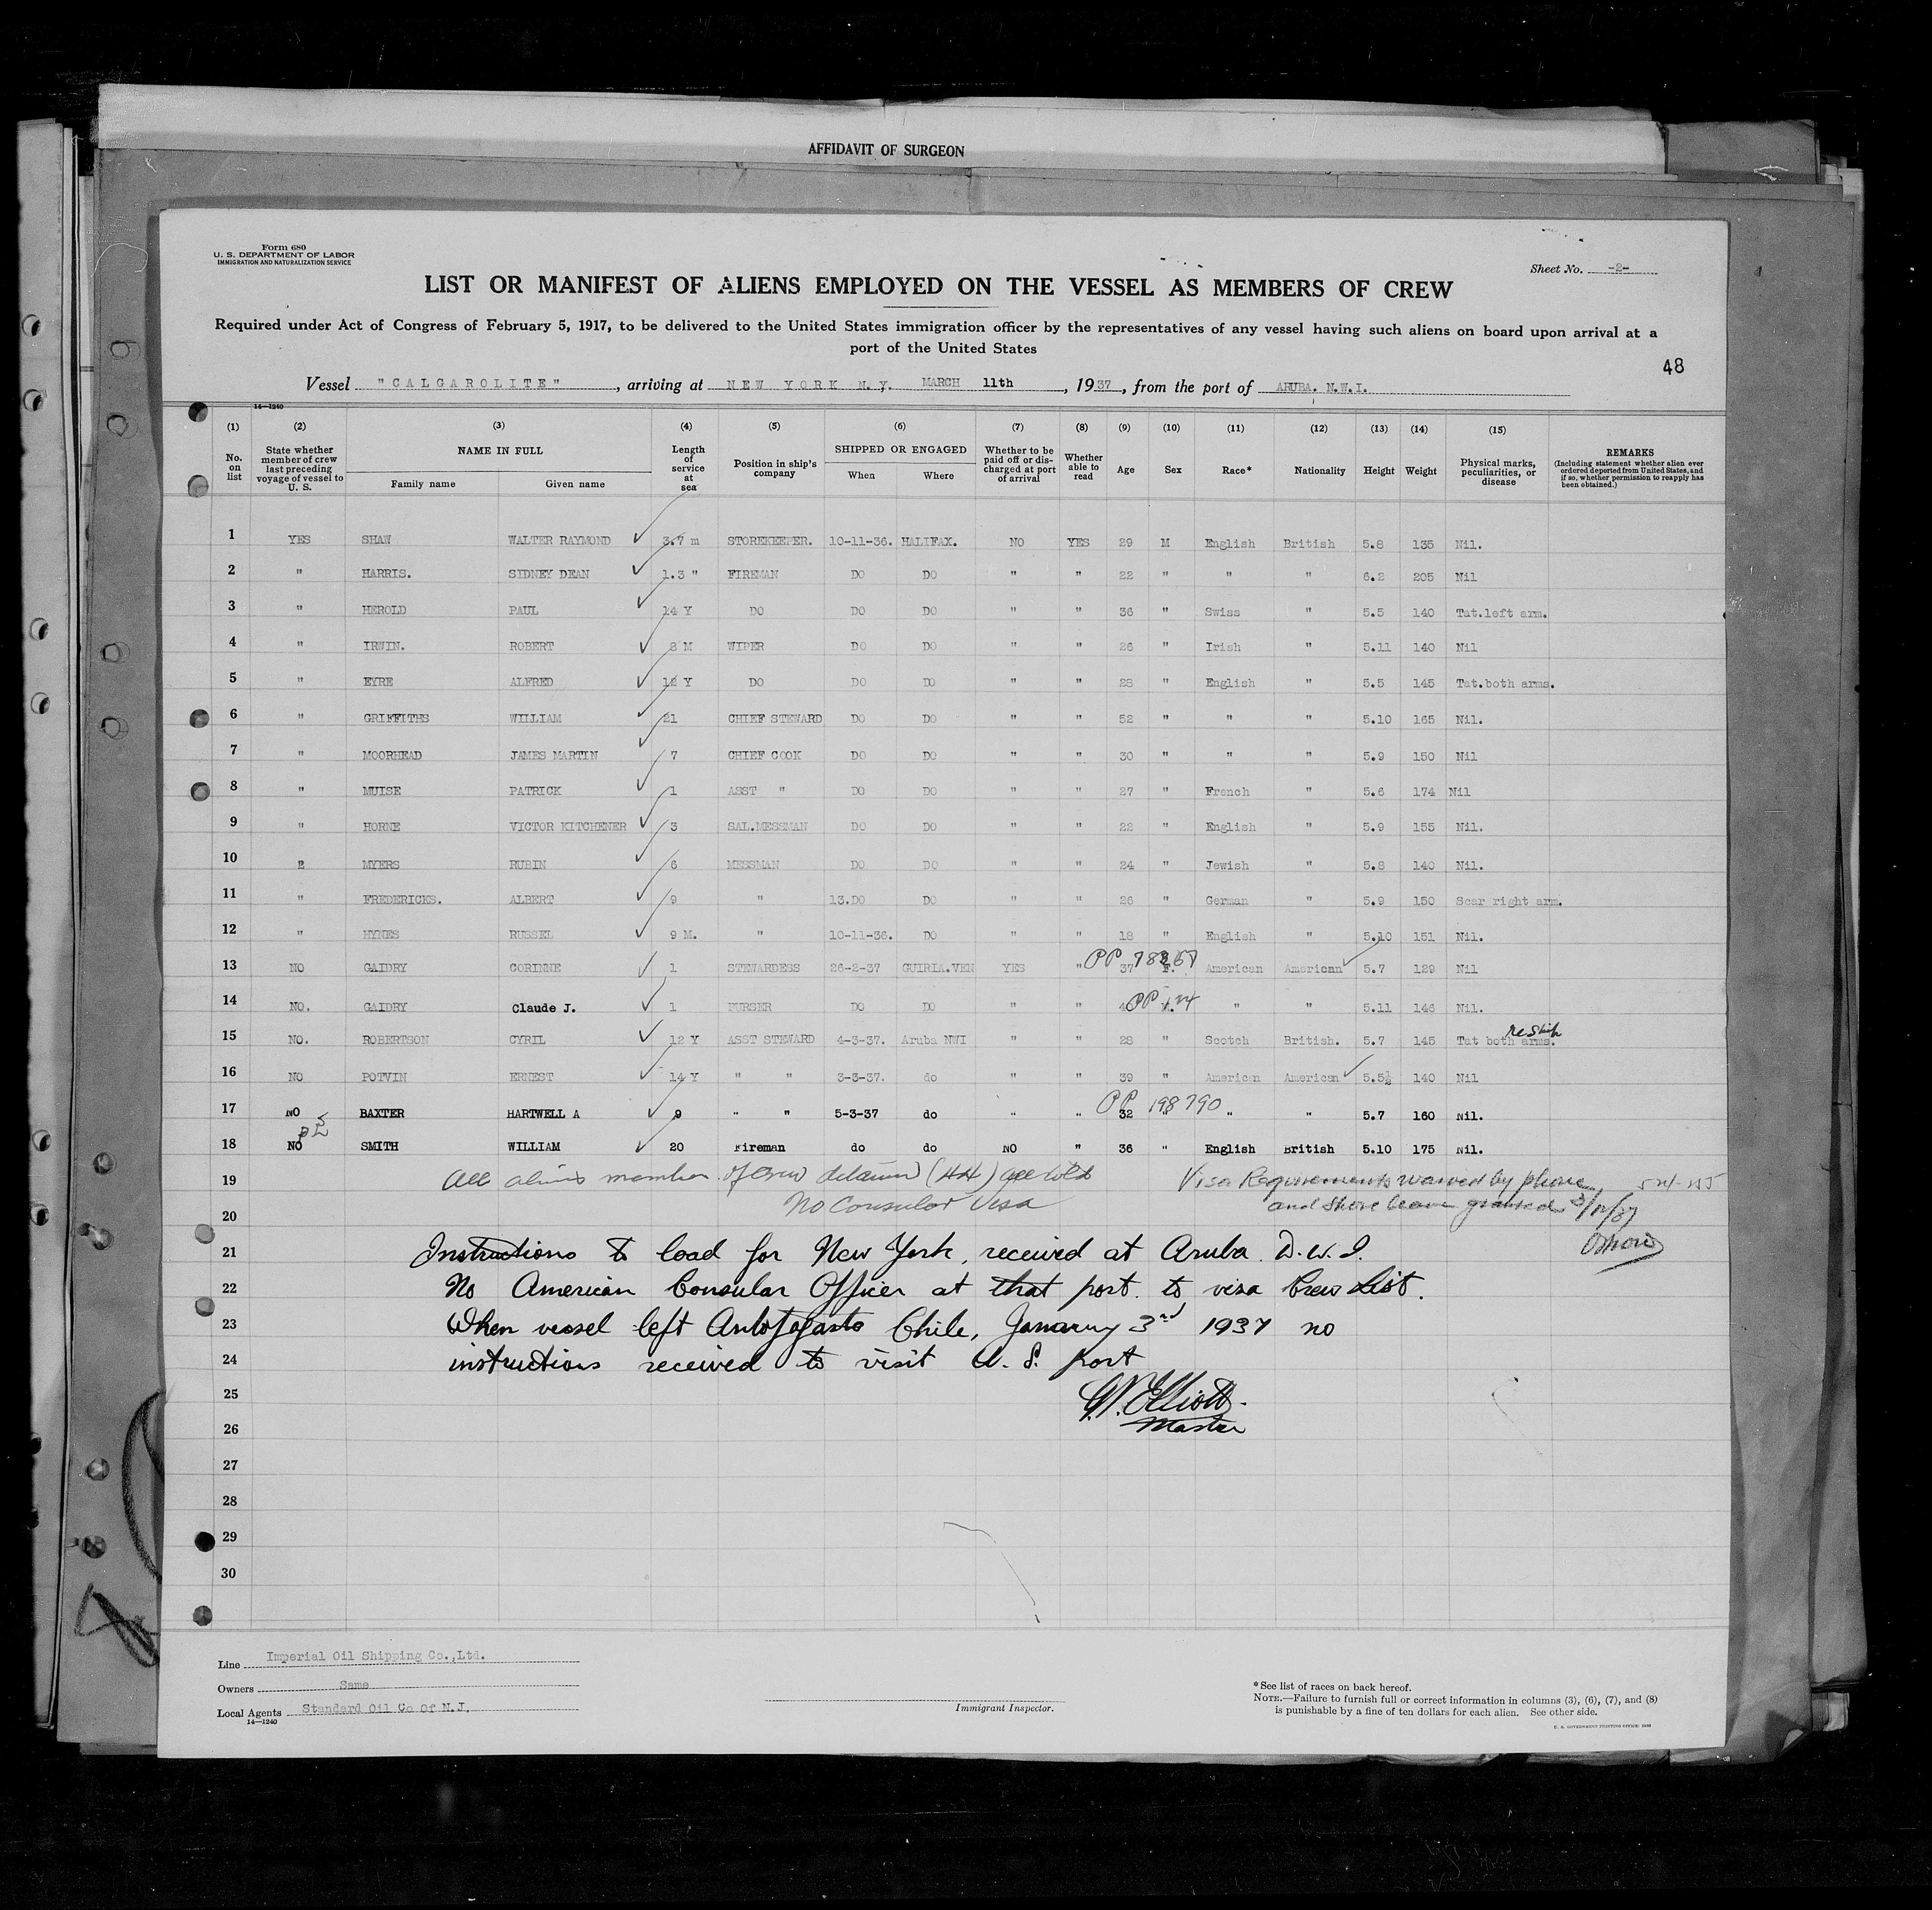 AFFIDAVIT OF SURGEON
Form 680
U. S. DEPARTMENT OF LABOR
IMMIGRATION AND NATURALIZATION SERVICE
Sheet No. -2-
LIST OR MANIFEST OF ALIENS EMPLOYED ON THE VESSEL AS MEMBERS OF CREW
Required under Act of Congress of February 5, 1917, to be delivered to the United States immigration officer by the representatives of any vessel having such aliens on board upon arrival at a
port of the United States
48
Vessel "CALGAROLITE", arriving at NEW YORK N.Y. MARCH 11th, 1937, from the port of ARUBA. N.W.I.
14—1240
(1) (2) (3) (4) (5) (6) (7) (8) (9) (10) (11) (12) (13) (14) (15)
No. on list State whether member of crew last preceding voyage of vessel to U. S. NAME IN FULL Family name Given name Length of service at sea Position in ship's company SHIPPED OR ENGAGED When Where Whether to be paid off or discharged at port of arrival Whether able to read Age Sex Race* Nationality Height Weight Physical marks, peculiarities, or disease REMARKS (Including statement whether alien ever ordered deported from United States, and if so, whether permission to reapply has been obtained.)
1 YES SHAW WALTER RAYMOND 3.7 m STOREKEEPER. 10-11-36. HALIFAX. NO YES 29 M English British 5.8 135 Nil.
2 " HARRIS. SIDNEY DEAN 1.3 " FIREMAN DO DO " " 22 " " " 6.2 205 Nil
3 " HEROLD PAUL 14 Y DO DO DO " " 36 " Swiss " 5.5 140 Tat.left arm.
4 " IRWIN. ROBERT 8 M WIPER DO DO " " 26 " Irish " 5.11 140 Nil
5 " EYRE ALFRED 12 Y DO DO DO " " 28 " English " 5.5 145 Tat.both arms.
6 " GRIFFITHS WILLIAM 21 CHIEF STEWARD DO DO " " 52 " " " 5.10 165 Nil.
7 " MOORHEAD JAMES MARTIN 7 CHIEF COOK DO DO " " 30 " " " 5.9 150 Nil
8 " MUISE PATRICK 1 ASST " DO DO " " 27 " French " 5.6 174 Nil
9 " HORNE VICTOR KITCHENER 3 SAL.MESSMAN DO DO " " 22 " English " 5.9 155 Nil.
10 2 MYERS RUBIN 6 MESSMAN DO DO " " 24 " Jewish " 5.8 140 Nil.
11 " FREDERICKS. ALBERT 9 " 13.DO DO " " 26 " German " 5.9 150 Scar right arm.
12 " HYNES RUSSEL 9 M. " 10-11-36. DO " " 18 " English " 5.10 151 Nil.
13 NO GAIDRY CORINNE 1 STEWARDESS 26-2-37 GUIRIA.VEN YES " PP 37 F. American American 5.7 129 Nil
14 NO. GAIDRY Claude J. 1 PURSER DO DO " " PP " " 5.11 146 Nil.
15 NO. ROBERTSON CYRIL 12 Y ASST STEWARD 4-3-37. Aruba NWI " " 28 " Scotch British. 5.7 145 Tat both arms. Reship
16 NO POTVIN ERNEST 14 Y " " 3-3-37. do " " 39 " American American 5.5½ 140 Nil
17 NO BAXTER HARTWELL A 9 " " 5-3-37 do " " PP 198790 32 " " 5.7 160 Nil.
18 NO SMITH WILLIAM 20 Fireman do do NO " 36 " English British 5.10 175 Nil.
19 All aliens member of crew detained (44) all told Visa Requirements waived by phone
20 No Consular Visa and shore leave granted 3/12/37
21 Instructions to load for New York, received at Aruba D.W.I.
22 No American Consular Officer at that port to visa Crew List.
23 When vessel left Antofagasta Chile, January 3rd 1937 no
24 instructions received to visit U. S. Port
25 Elliott
26 Master
27
28
29
30
Line Imperial Oil Shipping Co.,Ltd.
Owners Same
Local Agents Standard Oil Co Of N.J.
14—1240
Immigrant Inspector.
*See list of races on back hereof.
NOTE.—Failure to furnish full or correct information in columns (3), (6), (7), and (8)
is punishable by a fine of ten dollars for each alien. See other side.